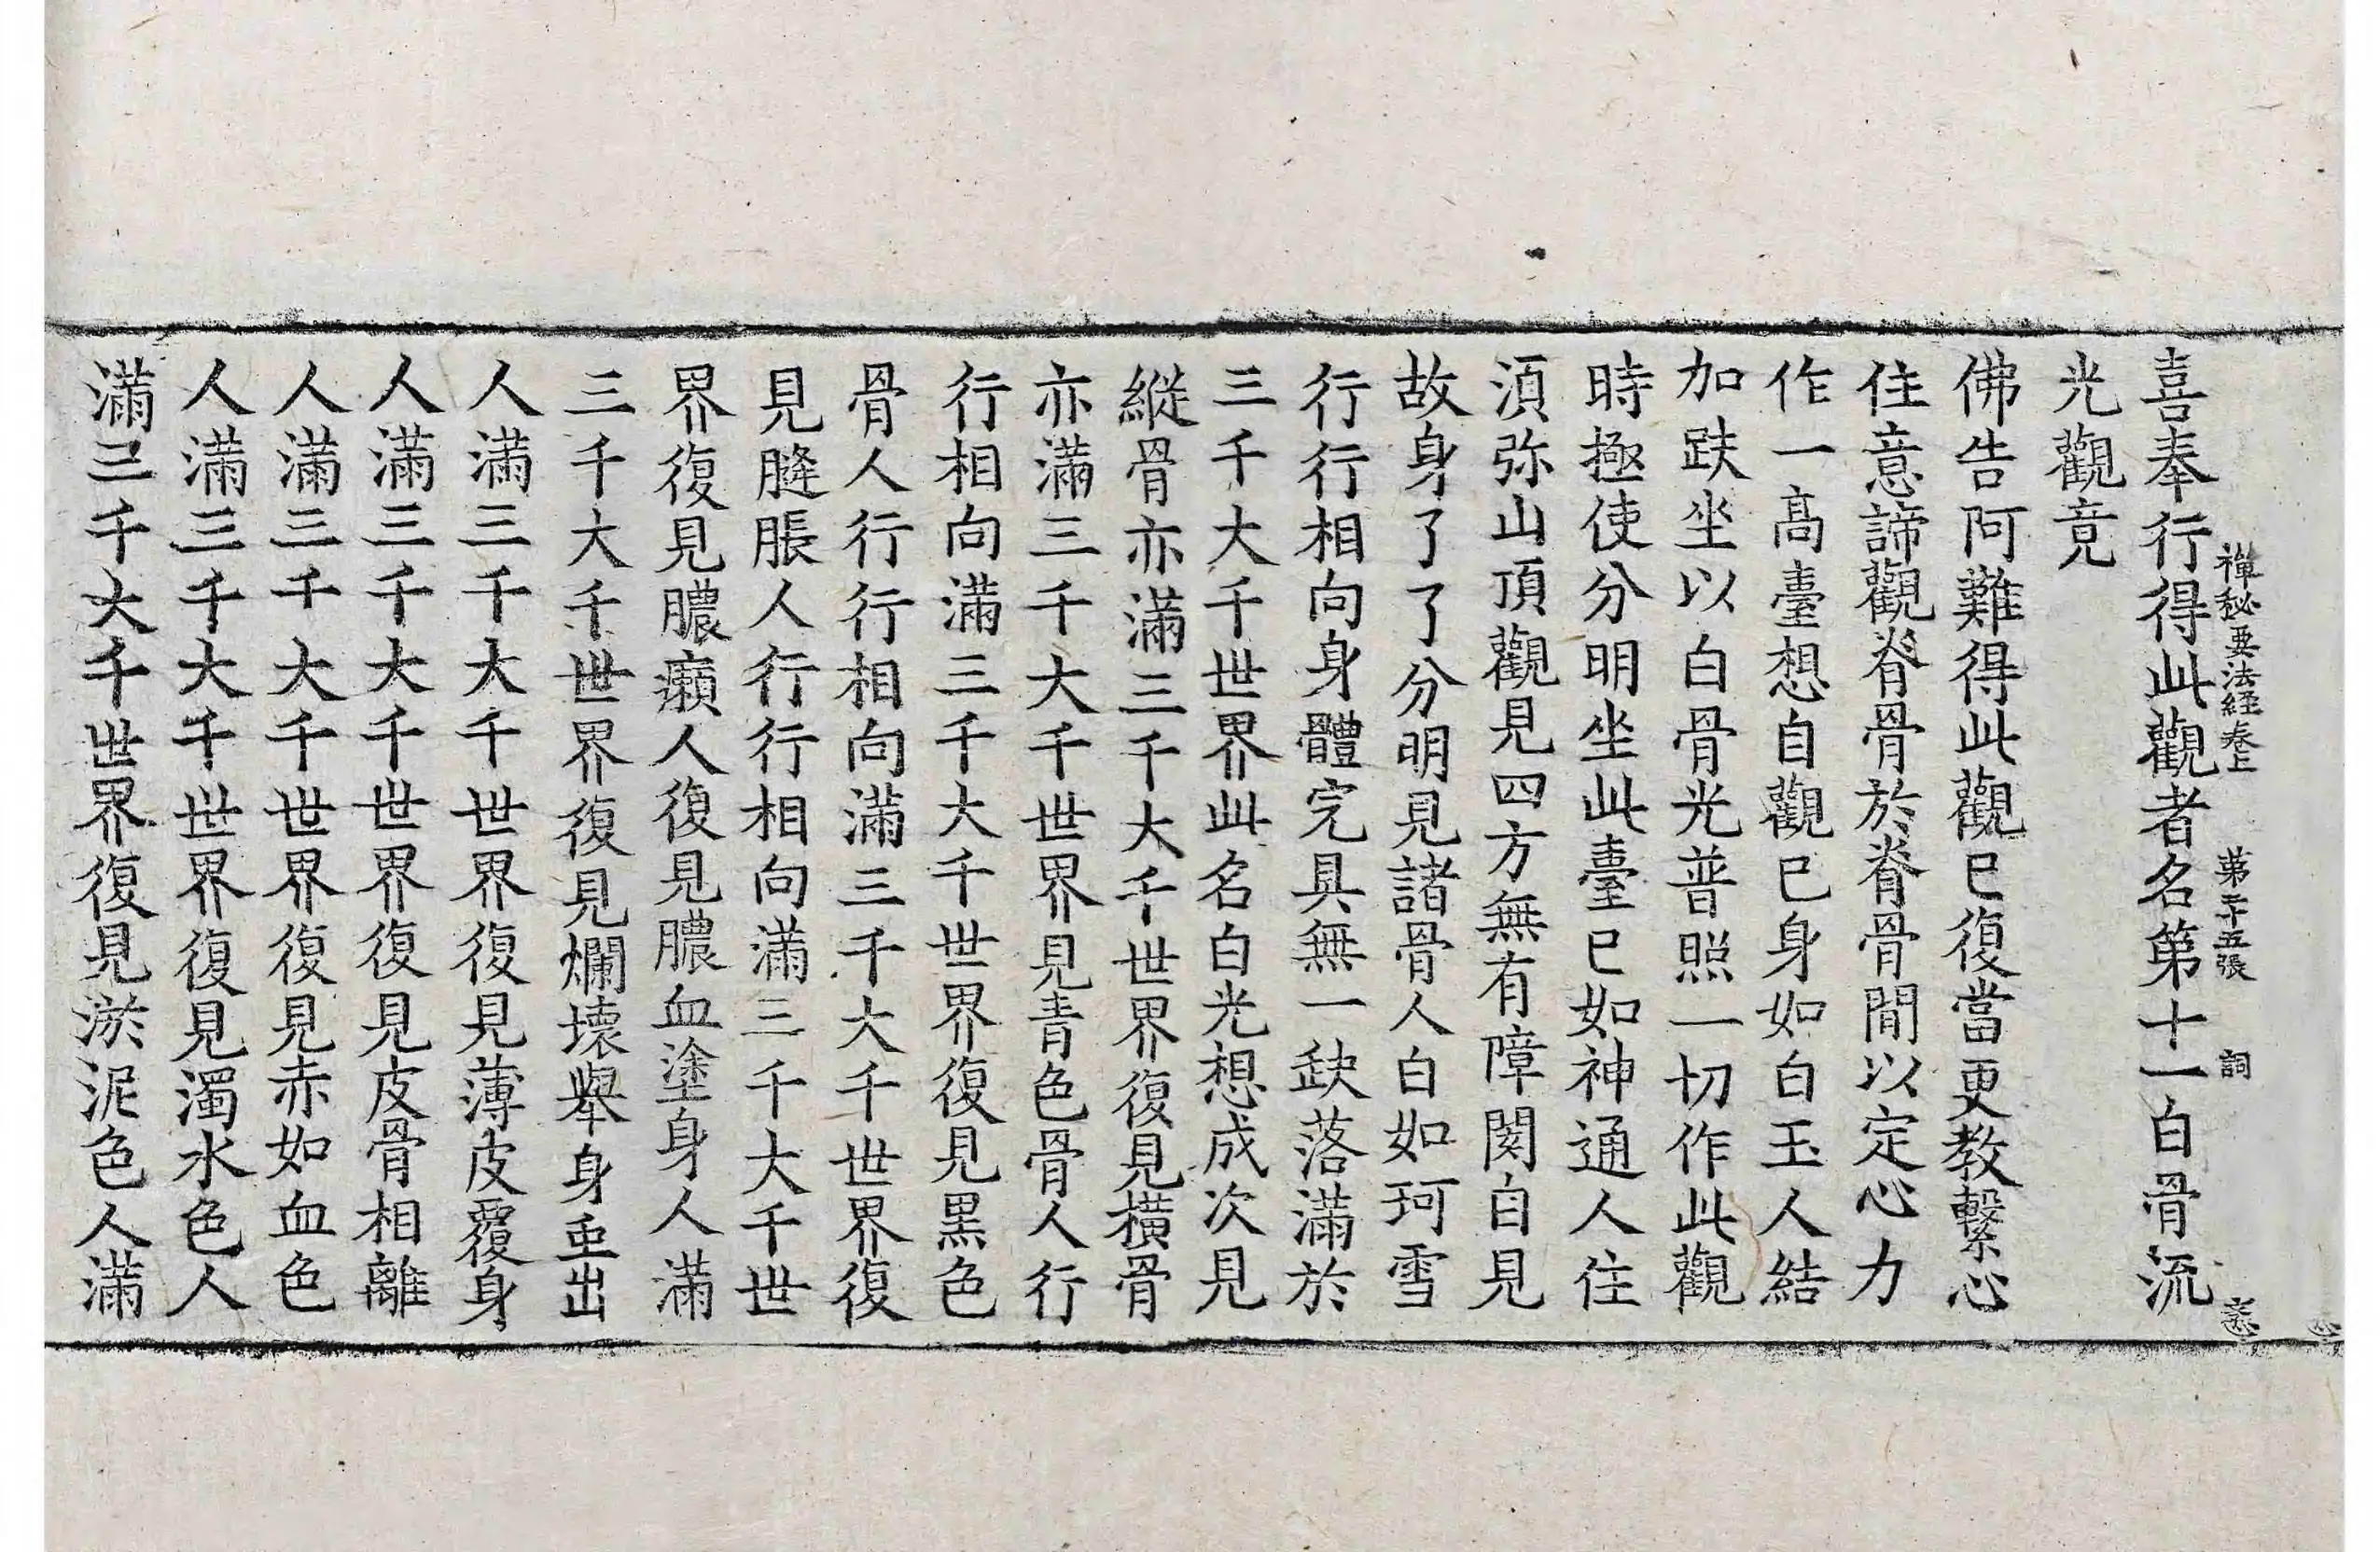 禪秘要法經卷上　第二十五張　詞
喜奉行得此觀者名第十一白骨流
光觀竟
佛告阿難得此觀已復當更教繫心
住意諦觀脊骨於脊骨間以定心力
作一高臺想自觀已身如白玉人結
加趺坐以白骨光普照一切作此觀
時極使分明坐此臺已如神通人住
湏弥山頂觀見四方無有障閡自見
故身了了分明見諸骨人白如珂雪
行行相向身體完具無一缺落滿於
三千大千世界此名白光想成次見
縱骨亦滿三千大千世界復見橫骨
亦滿三千大千世界見青色骨人行
行相向滿三千大千世界復見黒色
骨人行行相向滿三千大千世界復
見膖脹人行行相向滿三千大千世
界復見膿癩人復見膿血塗身人滿
三千大千世界復見爛壞舉身虫出
人滿三千大千世界復見薄皮覆身
人滿三千大千世界復見皮骨相離
人滿三千大千世界復見赤如血色
人滿三千大千世界復見濁水色人
滿三千大千世界復見淤泥色人滿